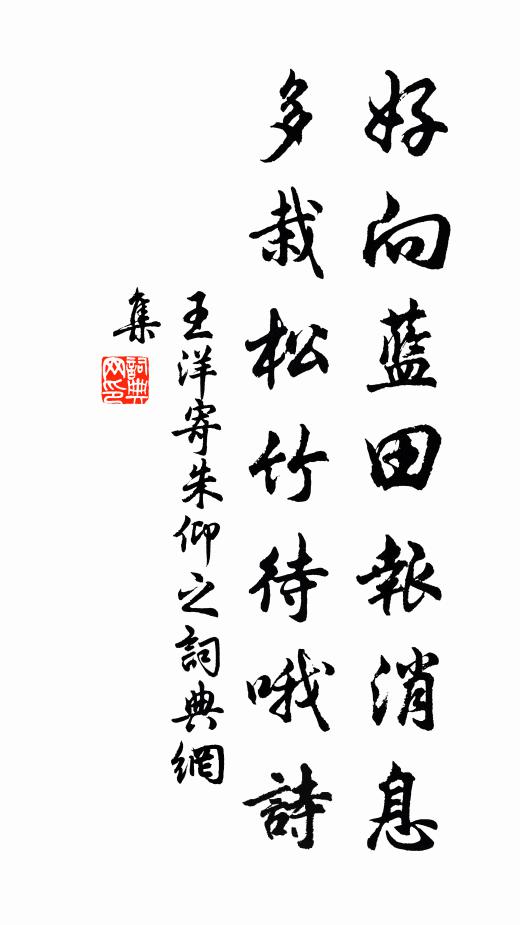 好向藍田報消息
多栽松竹待哦詩
王洋寄朱仰之詞典網
集
詞典网印